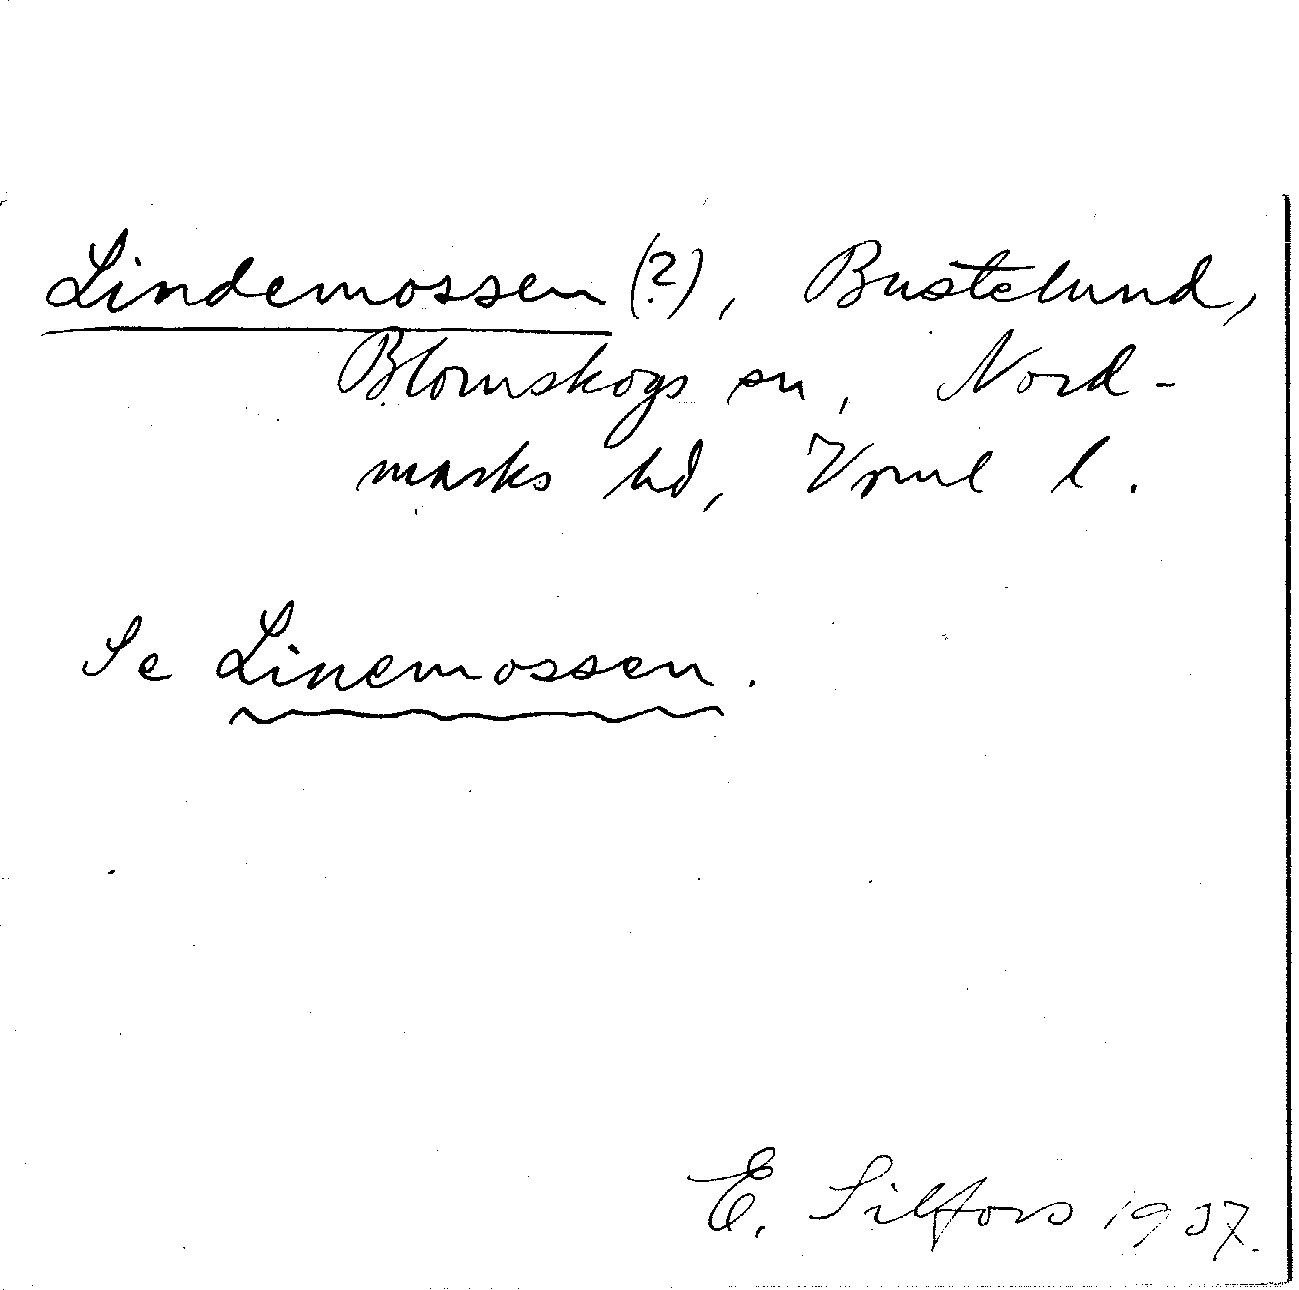 Lindemossen (?), Bustelund,
Blomskogs sn, Nord-
marks hd, Vrml l.
Se Linemossen.
E. Silfors 1937.